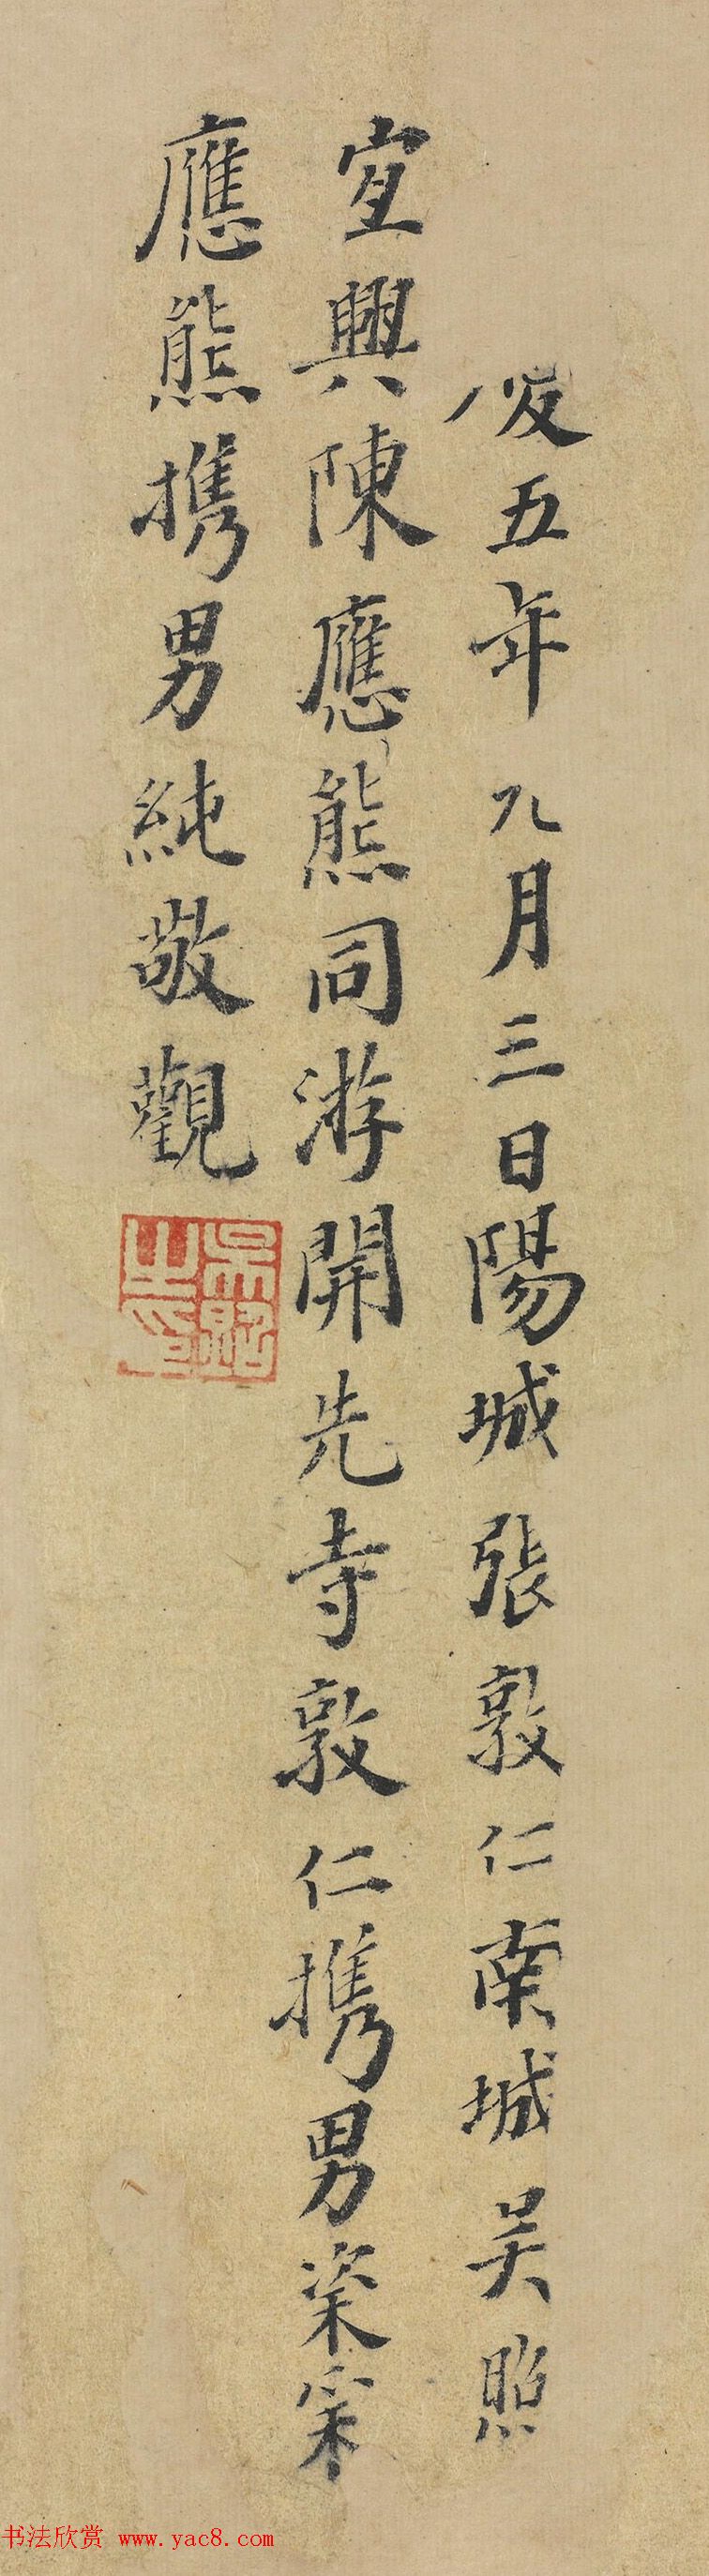 慶五年九月三日陽城張敦仁南城吳照
宜興陳應熊同游開先寺敦仁携男粢
應熊携男純敬觀
吳照之印
书法欣赏 www.yac8.com